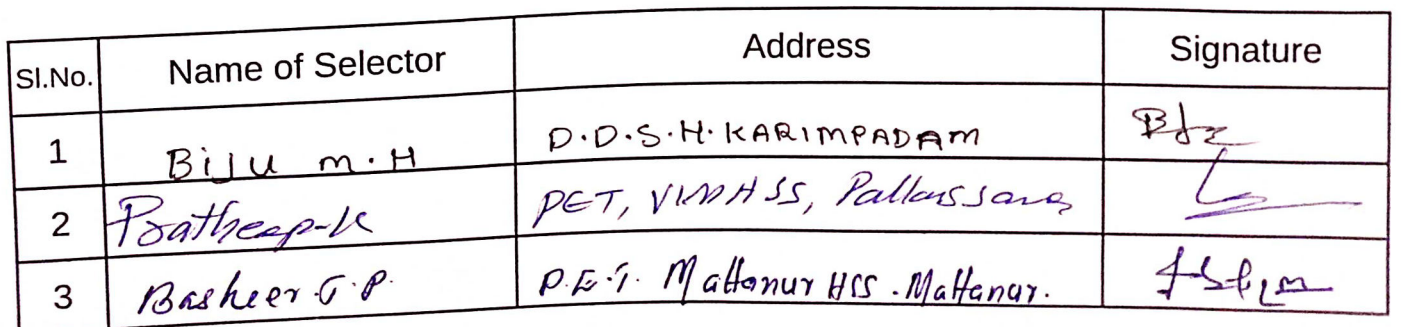 Sl.No. Name of Selector Address Signature
1 Biju M.H D.D.S.H. KARIMPADAM
2 Pratheep-K PET, VIMHSS, Pallassana
3 Basheer T.P. P.E.T. Mattanur HSS. Mattanur.